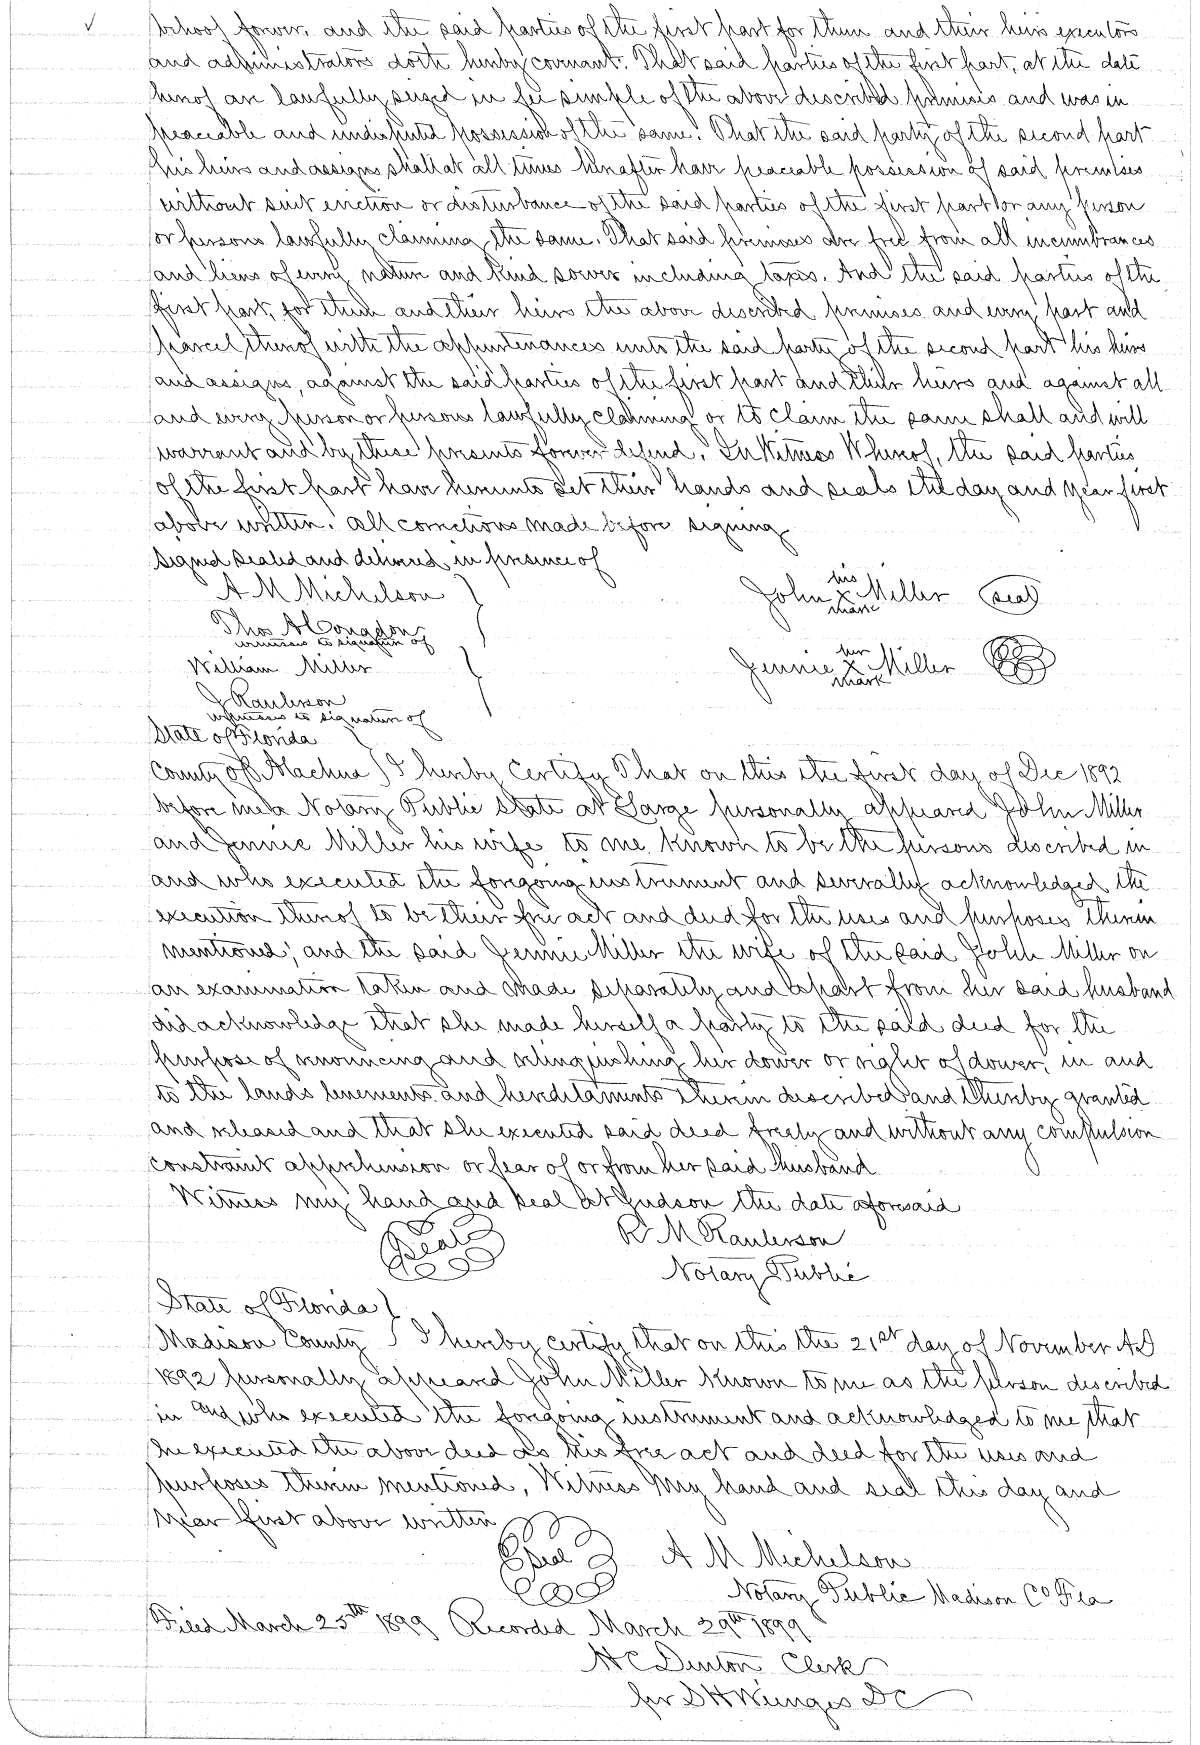 behoof forever. and the said parties of the first part for them and their heirs executors
and administrators doth hereby covenant. That said parties of the first part, at the date
hereof are lawfully seized in fee simple of the above described premises and was in
peaceable and undisputed possession of the same. That the said party of the second part
his heirs and assigns shall at all times hereafter have peaceable possession of said premises
without suit eviction or disturbance of the said parties of the first part or any person
or persons lawfully claiming the same. That said premises are free from all incumbrances
and liens of every nature and kind soever including taxes. And the said parties of the
first part, for them and their heirs the above described premises and every part and
parcel thereof with the appurtenances unto the said party of the second part his heirs
and assigns, against the said parties of the first part and their heirs and against all
and every person or persons lawfully claiming or to claim the same shall and will
warrant and by these presents forever defend. In Witness Whereof, the said parties
of the first part have hereunto set their hands and seals the day and year first
above written. all corrections made before signing
Signed sealed and delivered in presence of
A M Michelson
Thos A Congdon
witnesses to signature of
William Miller
J Raulerson
witnesses to signature of
his
John X Miller (seal)
mark
her
Jennie X Miller
mark
State of Florida
County of Alachua } I hereby Certify That on this the first day of Dec 1892
before me a Notary Public State at Large personally appeared John Miller
and Jennie Miller his wife to me known to be the persons described in
and who executed the foregoing instrument and severally acknowledged the
execution thereof to be their free act and deed for the uses and purposes therein
mentioned; and the said Jennie Miller the wife of the said John Miller on
an examination taken and made separately and apart from her said husband
did acknowledge that she made herself a party to the said deed for the
purpose of renouncing and relinquishing her dower or right of dower, in and
to the lands tenements and hereditaments therein described and thereby granted
and released and that she executed said deed freely and without any compulsion
constraint apprehension or fear of or from her said husband
Witness my hand and seal at Judson the date aforesaid
Seal R M Raulerson
Notary Public
State of Florida }
Madison County } I hereby certify that on this the 21st day of November AD
1892 personally appeared John Miller known to me as the person described
in and who executed the foregoing instrument and acknowledged to me that
he executed the above deed as his free act and deed for the uses and
purposes therein mentioned, Witness My hand and seal this day and
year first above written
Seal A M Michelson
Notary Public Madison Co Fla
Filed March 25th 1899 Recorded March 29th 1899
H C Denton Clerk
per S H Wienges DC